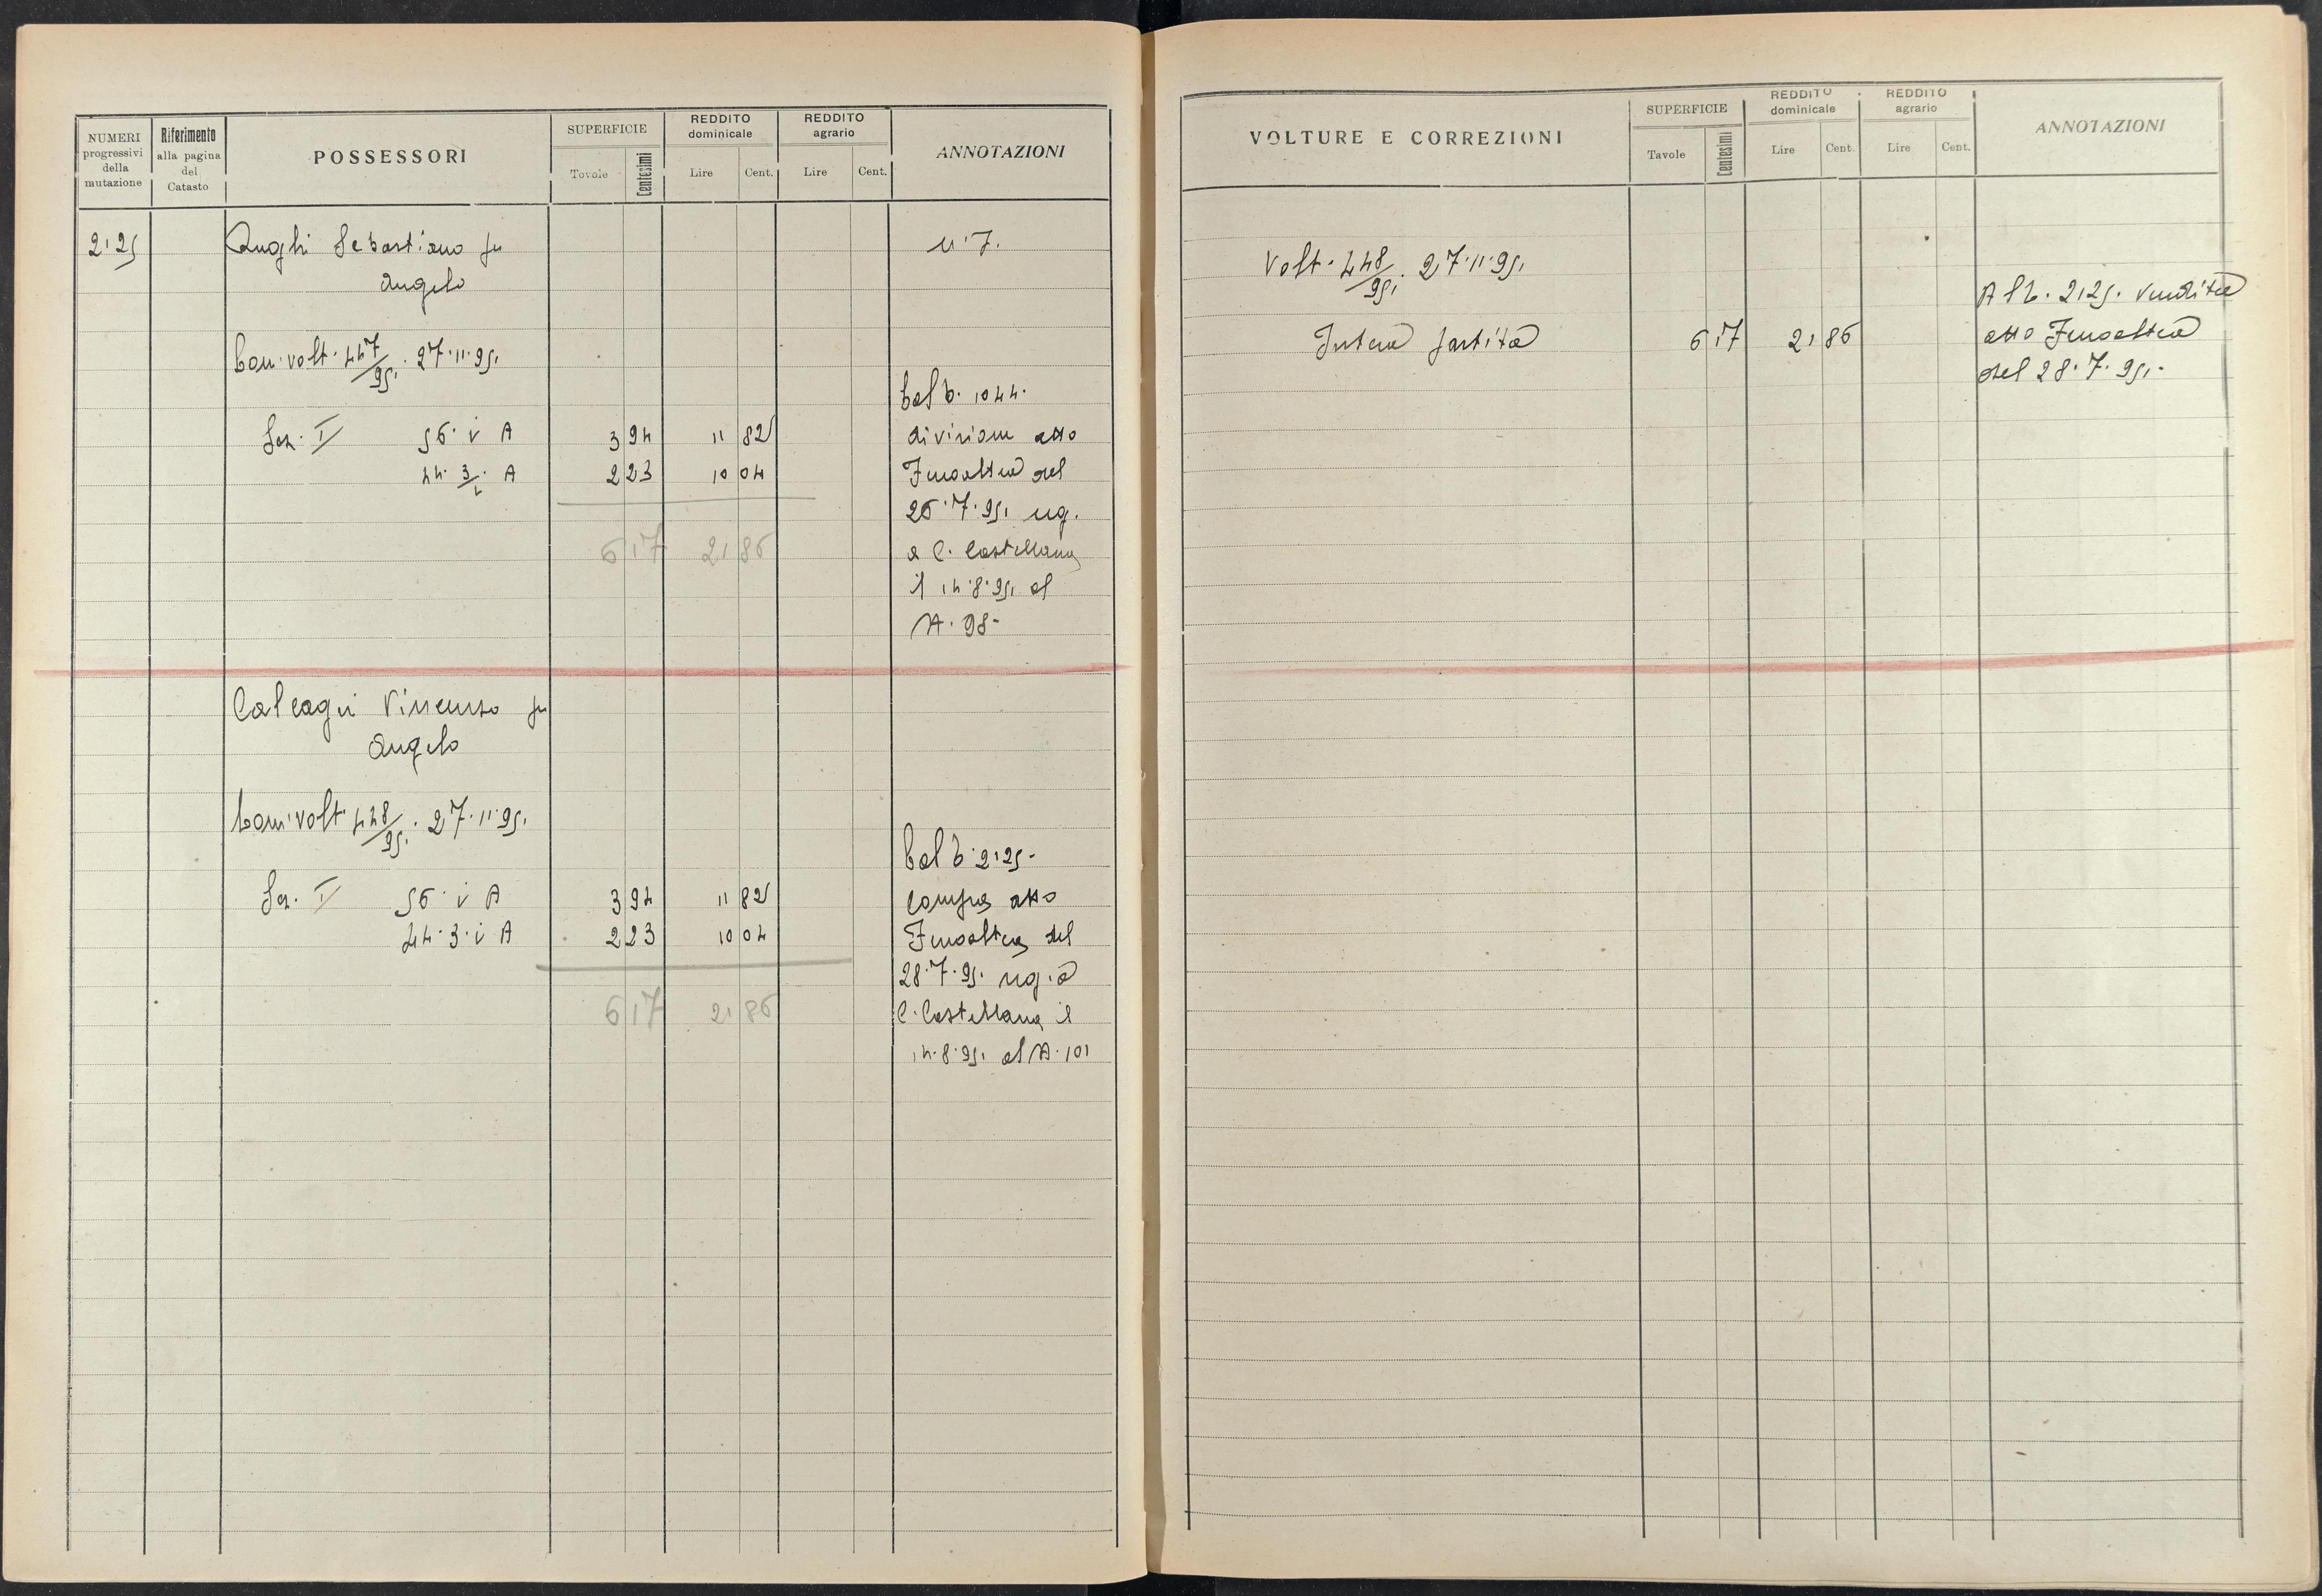 NUMERI progressivi della mutazione
Riferimento alla pagina del Catasto
POSSESSORI
SUPERFICIE
Tovole
Centesimi
REDDITO dominicale
Lire
Cent.
REDDITO agrario
Lire
Cent.
ANNOTAZIONI
2125
Anghi Sebastiano fu
n. 7.
Angelo
Con volt. 447/951. 27.11.951
Sez. I 56. i A 3 94 11 82
44. 3/i. A 2 23 10 04
6 17 21 86
Dal b. 1044.
divisione atto
del
26.7.951 reg.
a C. Castellana
il 14.8.951 al
N. 98-
Calcagni Vincenzo fu
Angelo
Con volt. 448/951. 27.11.951
Sez. I 56. i A 3 94 11 82
44. 3. i A 2 23 10 04
6 17 21 86
Dal b. 2125-
compra atto
del
28.7.951 reg. a
C. Castellana il
14.8.951 al N. 101
VOLTURE E CORREZIONI
SUPERFICIE
Tavole
Centesimi
REDDITO dominicale
Lire
Cent.
REDDITO agrario
Lire
Cent.
ANNOTAZIONI
Volt. 448/951. 27.11.951
Intera partita 6 17 21 86
Al b. 2125. vendita
atto
del 28.7.951.-